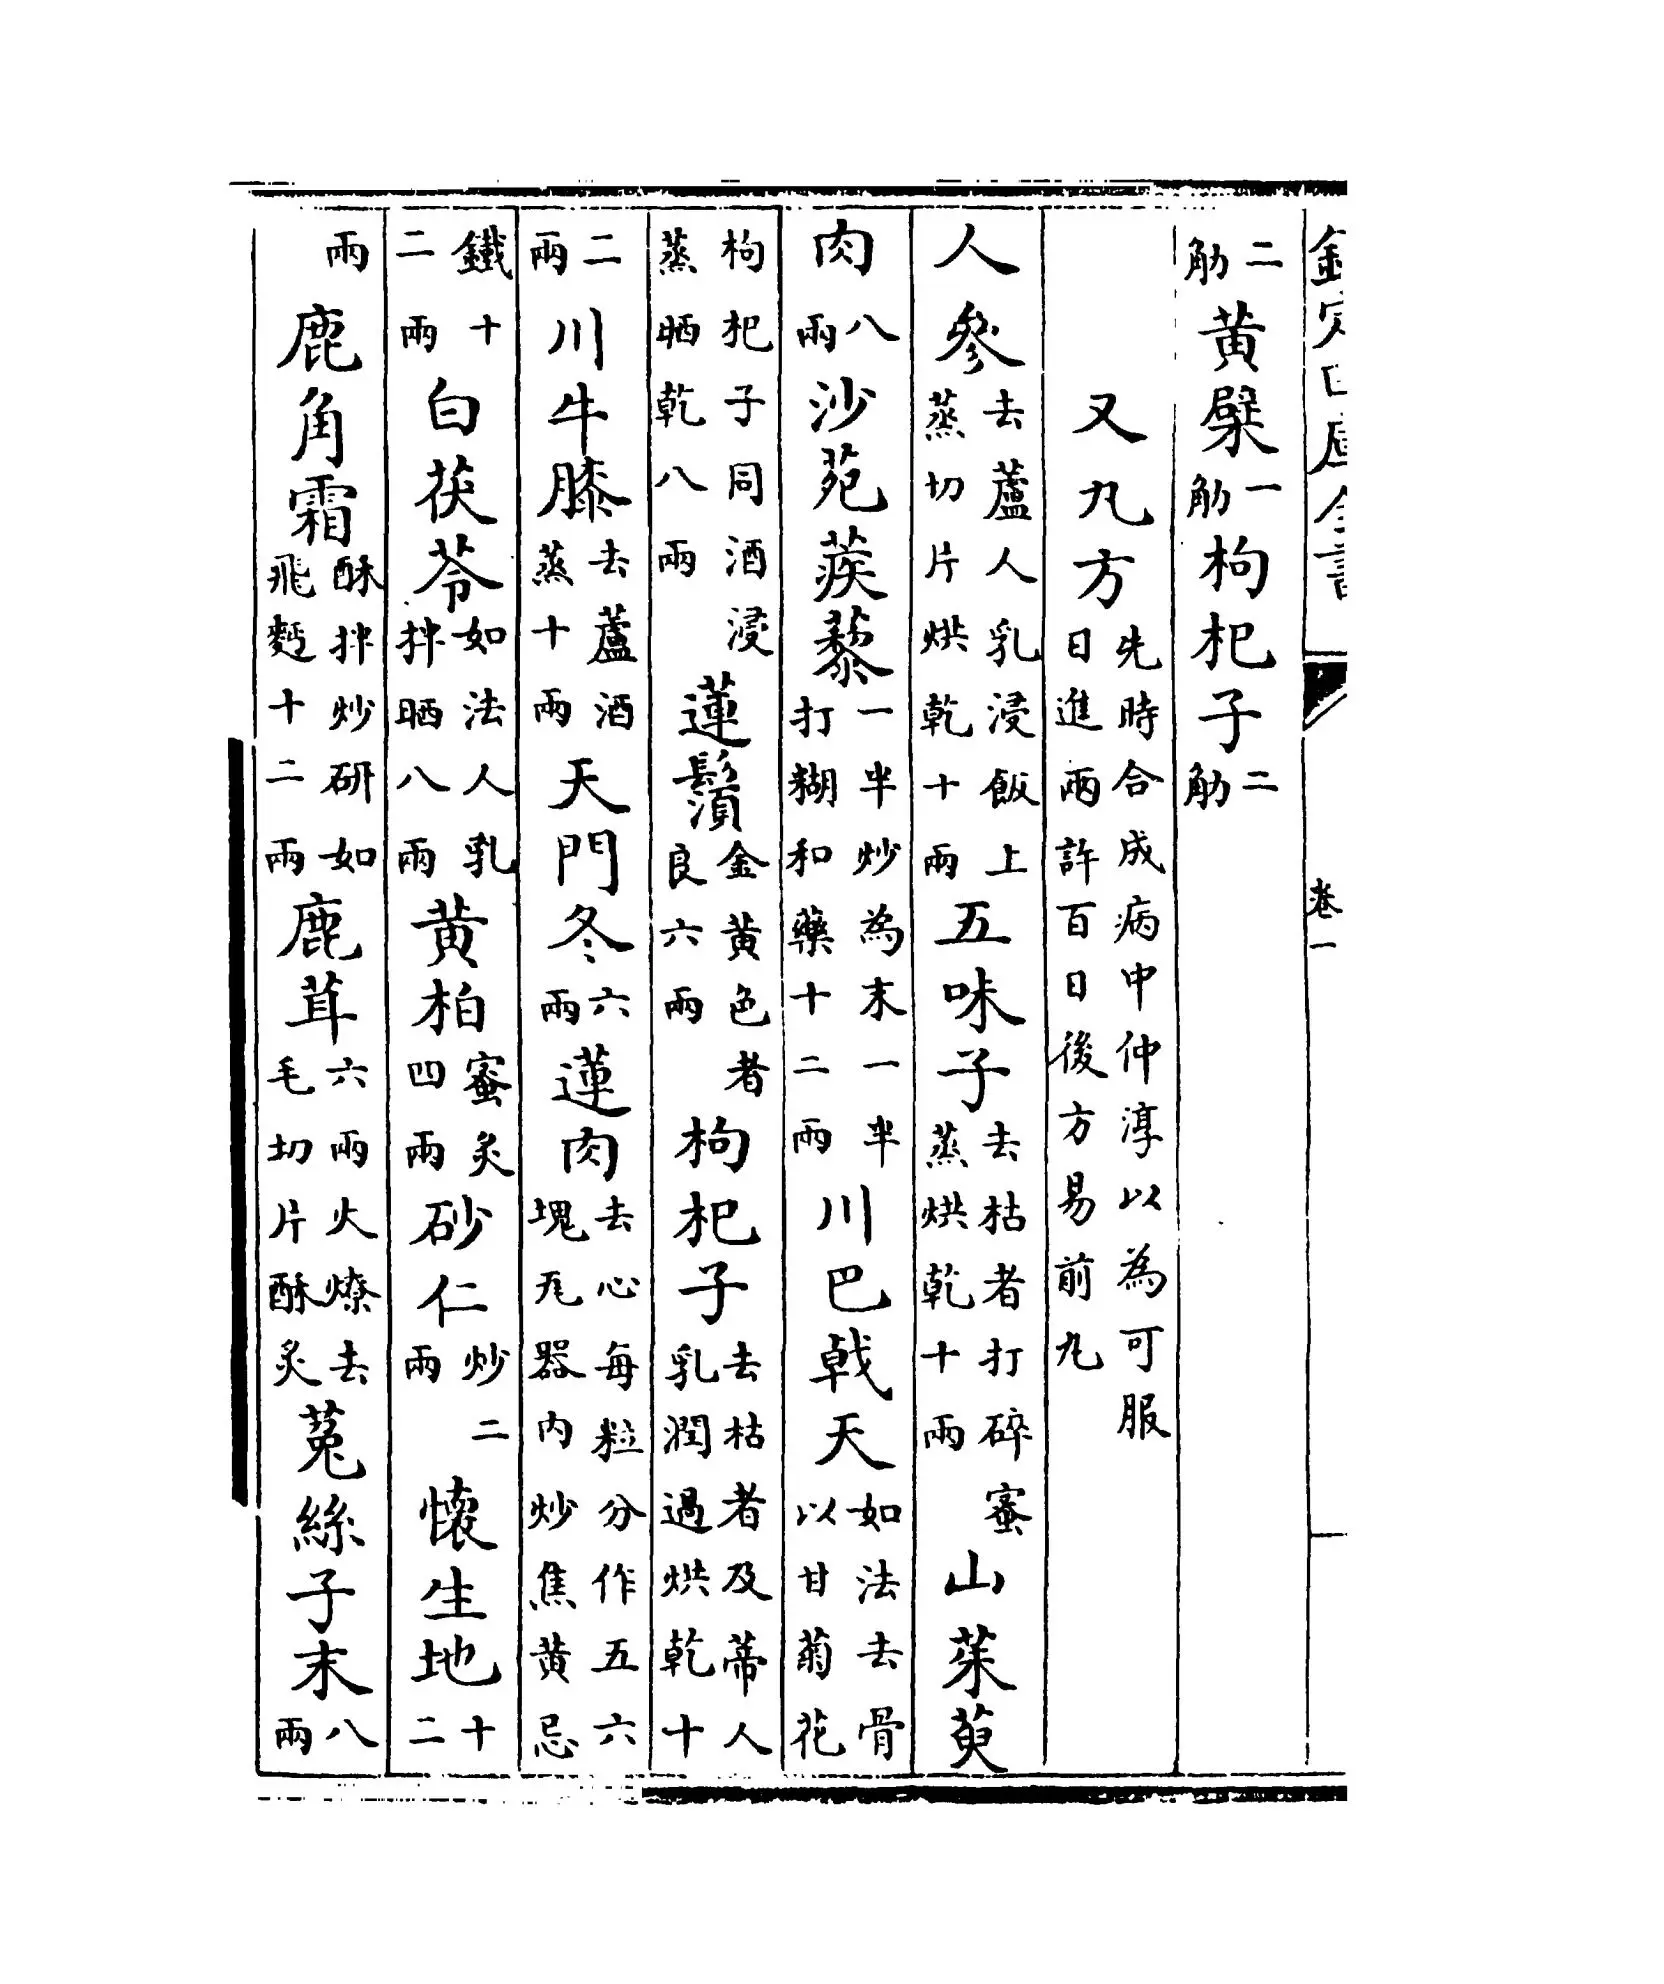 欽定四庫全書 卷一
二觔黄檗一觔枸杞子二觔
又丸方先時合成病中仲淳以為可服日進兩許百日後方易前丸
人參去蘆人乳浸飯上蒸切片烘乾十兩五味子去枯者打碎蜜蒸烘乾十兩山茱萸
肉八兩沙苑蒺藜一半炒為末一半打糊和藥十二兩川巴戟天如法去骨以甘菊花
枸杞子同酒浸蒸晒乾八兩蓮鬚金黄色者良六兩枸杞子去枯者及蒂人乳潤過烘乾十
二兩川牛膝去蘆酒蒸十兩天門冬六兩蓮肉去心每粒分作五六塊瓦器内炒焦黄忌
鐵十二兩白茯苓如法人乳拌晒八兩黄柏蜜炙四兩砂仁炒二兩懷生地十二
兩鹿角霜酥拌炒研如飛麪十二兩鹿茸六兩火燎去毛切片酥炙菟絲子末八兩